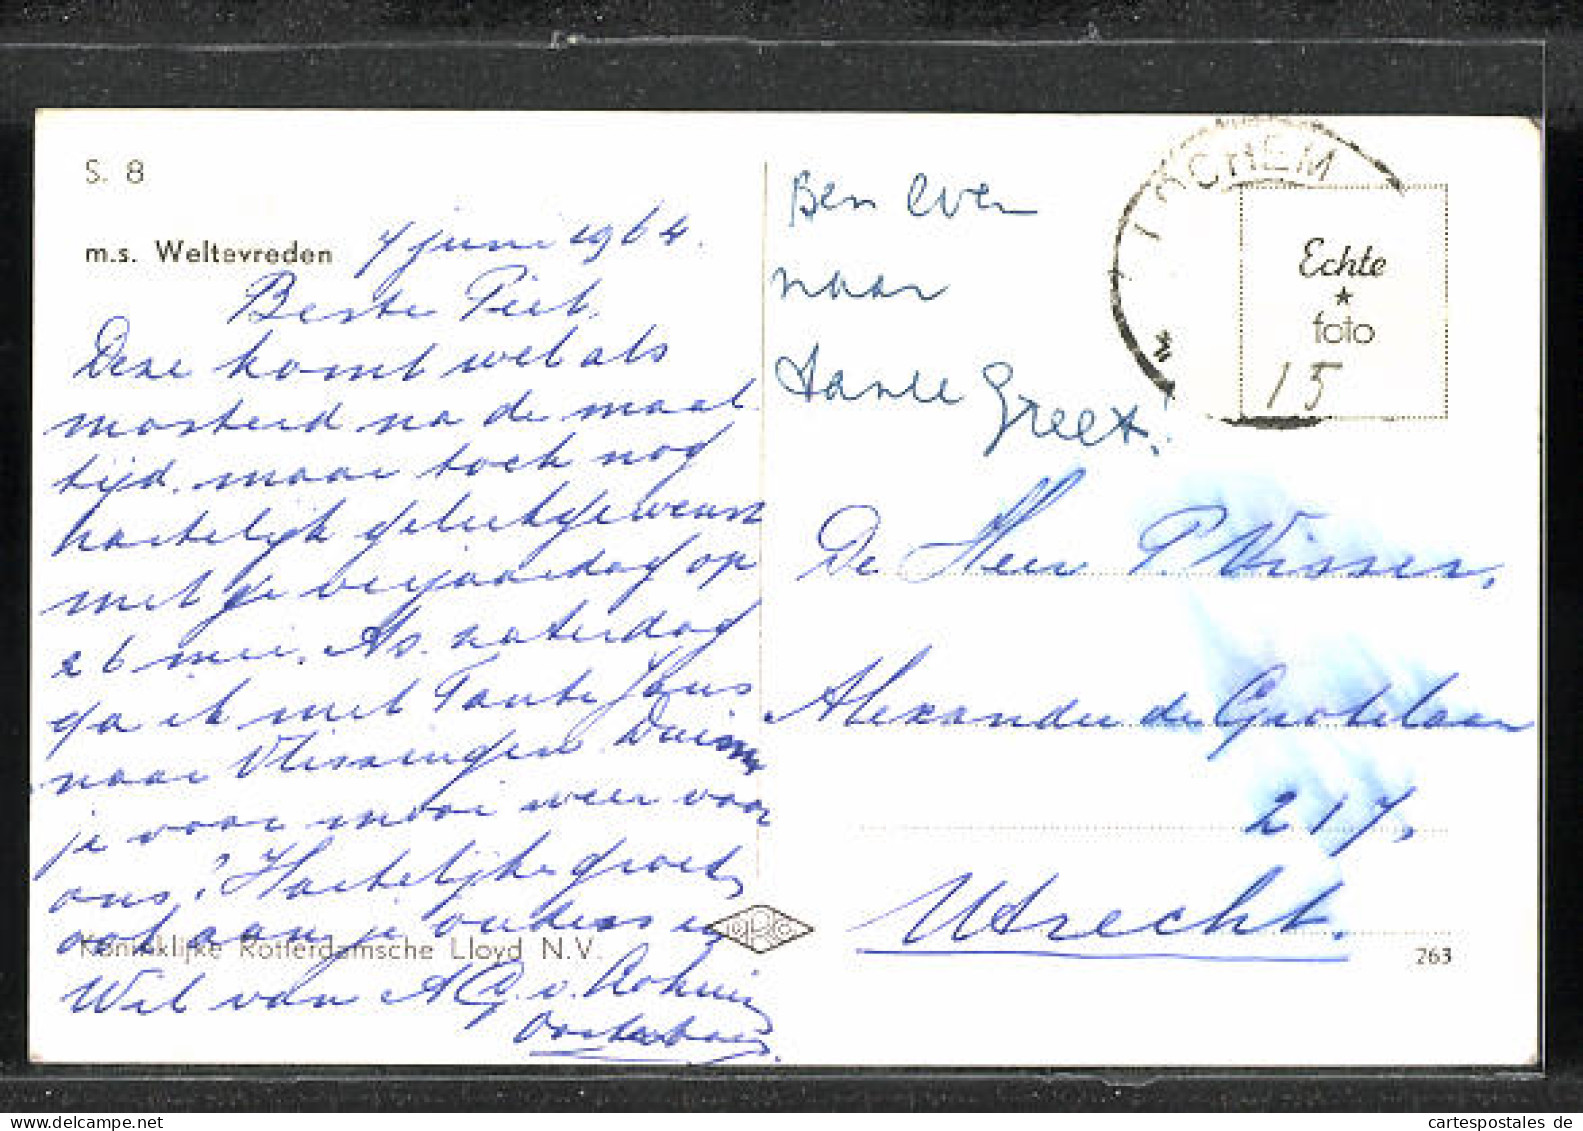 S. 8
m.s. Weltevreden
7 juni 1964.
Beste Piet.
Deze komt wel als
mosterd na de maal
tijd. maar toch nog
hartelijk gelukgewenst
met je verjaardag op
26 mei. As. zaterdag
ga ik met Tante Jaus
naar Vlissingen. Duim
je voor mooi weer voor
ons? Hartelijke groet,
ook aan je ouders en
Wil van A.G. v.
Koninklijke Rotterdamsche Lloyd N.V.
Ben even
naar
tante Greet!
LOCHEM
Echte
★
foto
15
De Heer P. Visser,
Alexander de Grotelaan
217,
Utrecht.
263
cartespostales de